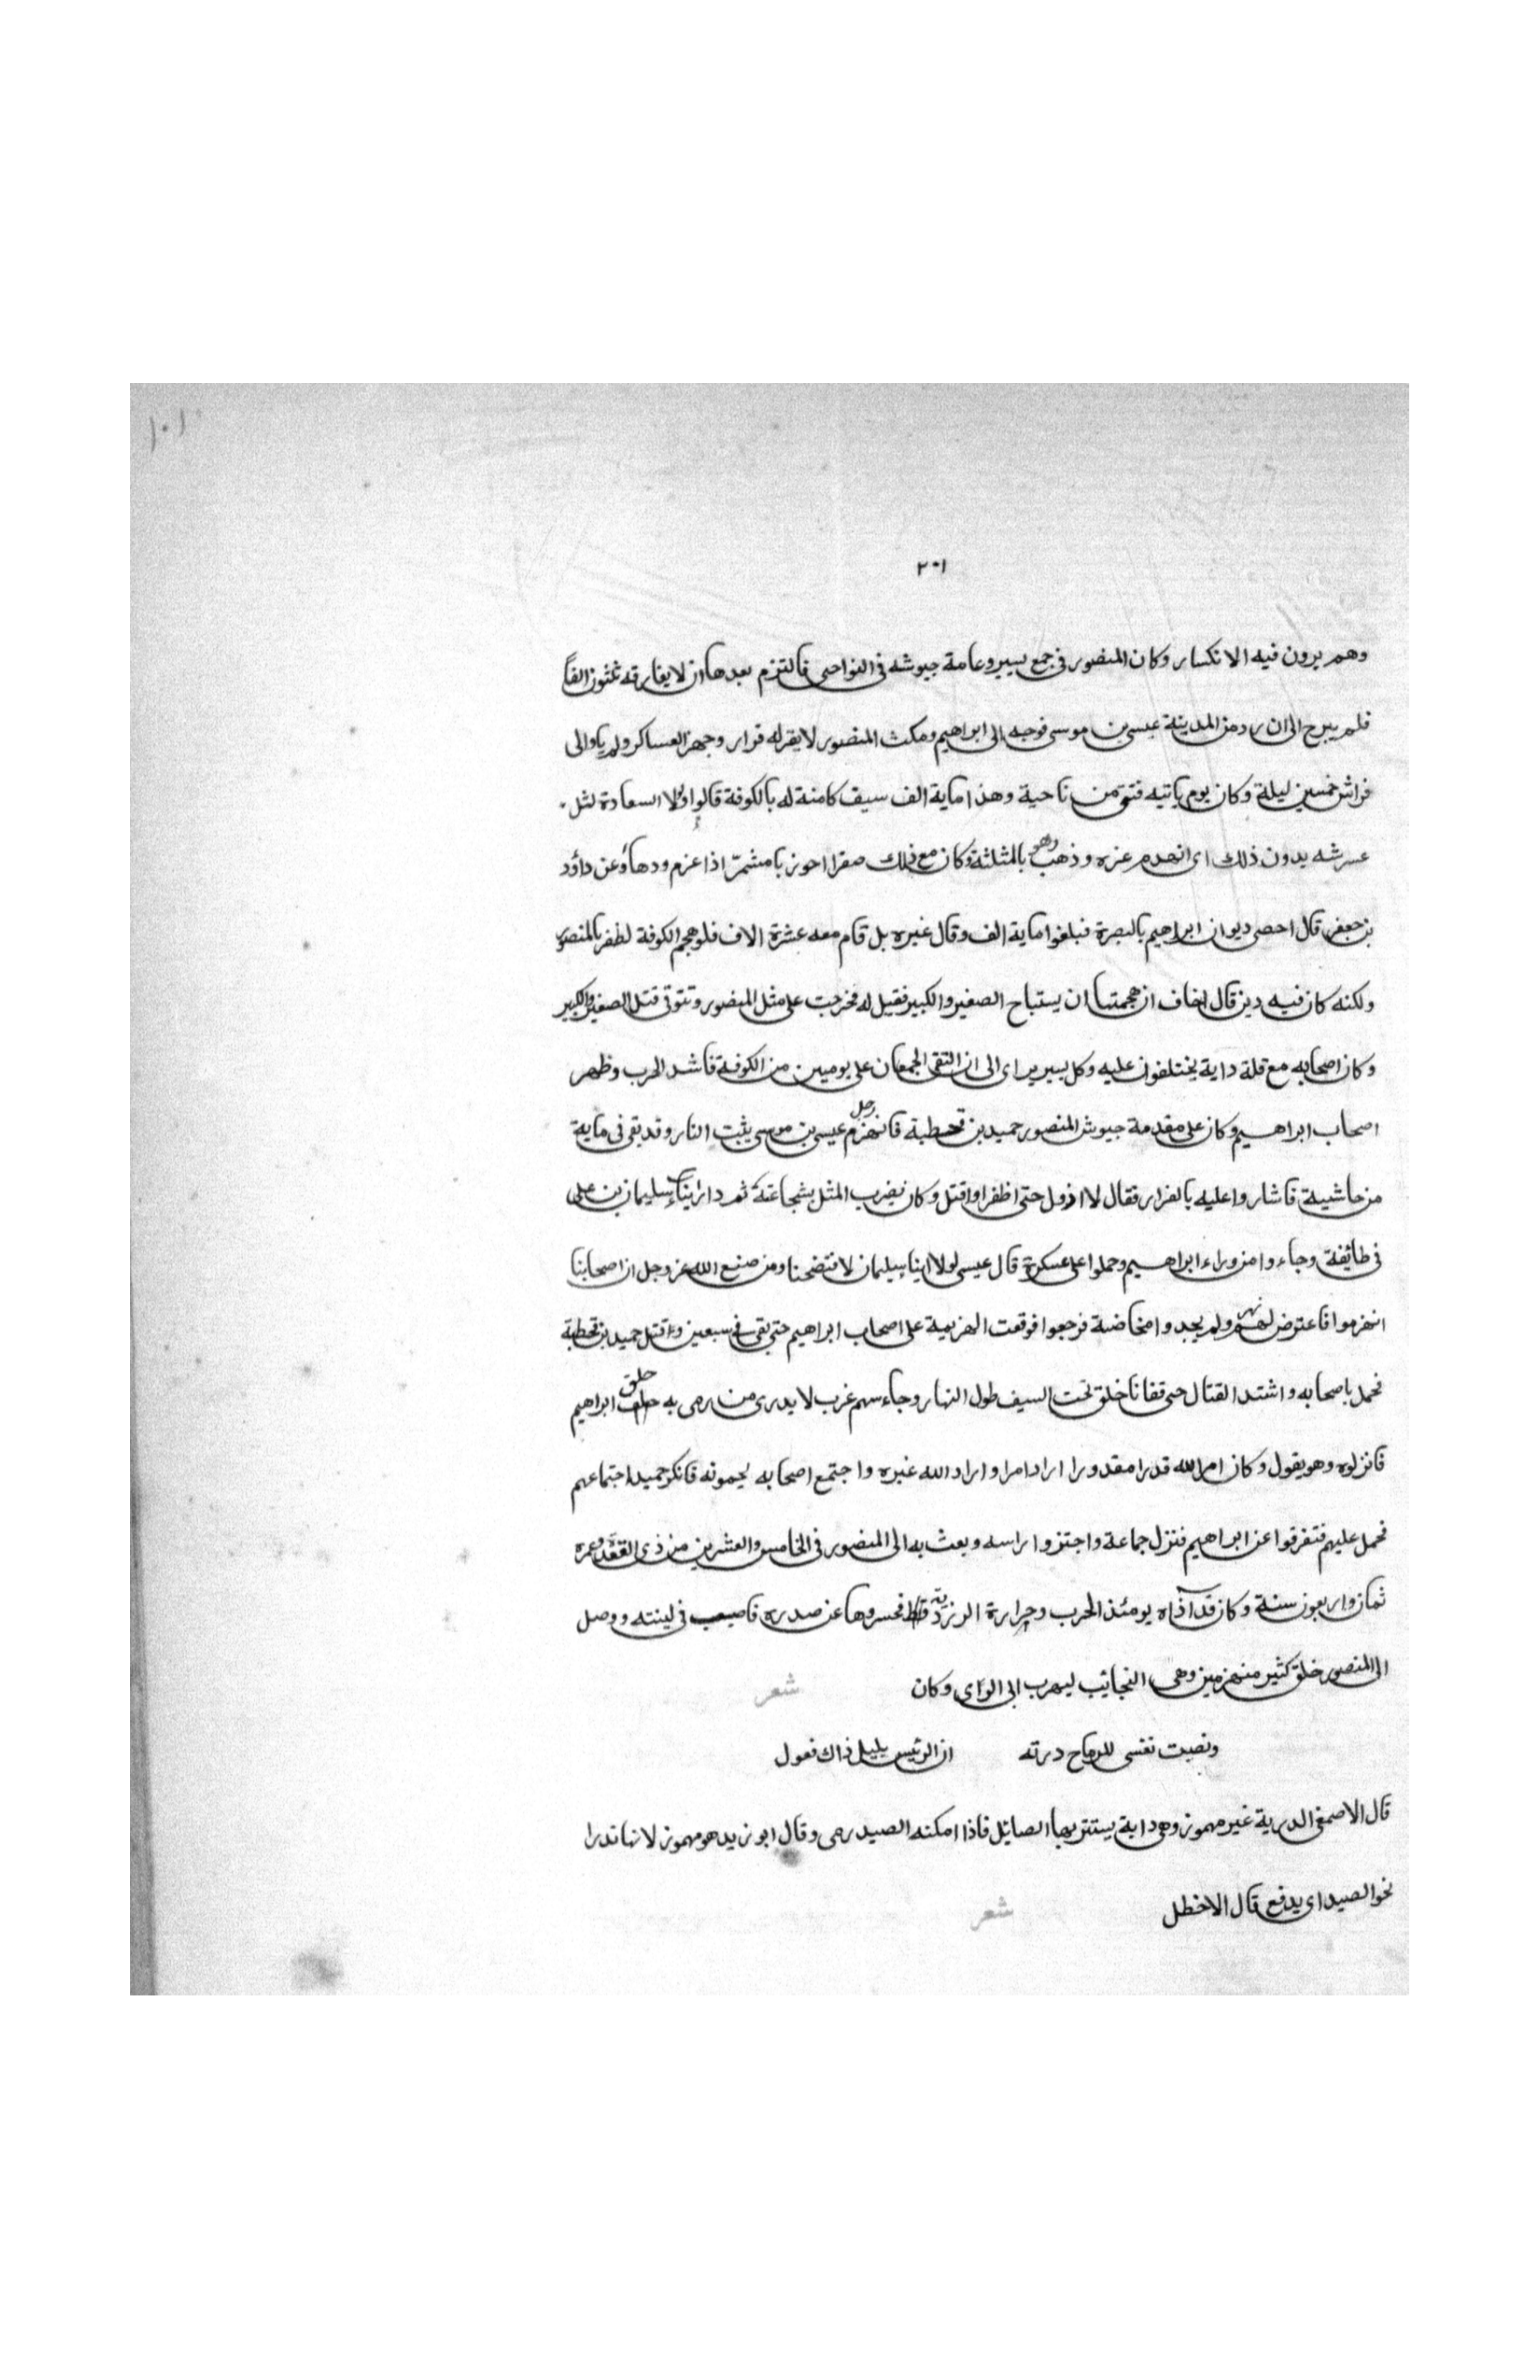 ١٠١
٢٠١
وهم يرون فيه الانكسار وكان المنصور فى جمع يسير وعامة جيوشه فى النواحى فالتزم بعدها ان لا يفارقه ثلثون الفاً
فلم يبرح الى ان رد من المدينة عيسى بن موسى فوجهه الى ابراهيم ومكث المنصور لا يقر له قرار وجهز العساكر ولم ياو الى
فراش خمسين ليلة وكان يوم ياتيه فتق من ناحية وهذا ماية الف سيف كامنة له بالكوفة قالوا ولولا السعادة لثل
عرشه بدون ذلك اى انهدم عزه وذهب وهو بالمثلثة وكان مع ذلك صقرا احوزيا مشمرّا اذا عزم ودهاؤ وعن داؤد
بن جعفر قال احصى ديوان ابراهيم بالبصرة فبلغوا ماية الف وقال غيره بل قام معه عشرة الاف فلو هجم الكوفة لظفر بالمنصور
ولكنه كان فيه دين قال اخاف ان هجمتها ان يستباح الصغير والكبير فقيل له فخرجت على مثل المنصور وتتوقى قتل الصغير والكبير
وكان اصحابه مع قلة داية يختلفون عليه وكل يسير براى الى ان التقى الجمعان على يومين من الكوفة فاشد الحرب وظهر
اصحاب ابراهيم وكان على مقدمة جيوش المنصور حميد بن قحطبة فانهزم عيسى بن موسى يثبت النار وقد بقى فى ماية
من حاشية فاشاروا عليه بالفرار فقال لا ازول حتى اظفر او اقتل وكان يضرب المثل بشجاعته ثم دار ابنا سليمان بن على
فى طائفة وجاءوا من وراء ابراهيم وحملوا على عسكرة قال عيسى لولا ابنا سليمان لافتضحنا ومن صنع الله عز وجل ان اصحابنا
انهزموا فاعترض لهم نهر ولم يجدوا مخاضة فرجعوا فوقعت الهزيمة على اصحاب ابراهيم حتى بقى فى سبعين واقتل حميد بن قحطبة
فحمل باصحابه واشتد القتال حتى تفانا خلق تحت السيف طول النهار وجاء سهم غرب لا يدرى من رمى به حلق ابراهيم
فانزلوه وهو يقول وكان امر الله قدرا مقدورا اراد امرا واراد الله غيره واجتمع اصحابه يحمونه فانكر حميد اجتماعهم
فحمل عليهم فتفرقوا عن ابراهيم فنزل جماعة واجتزوا راسه وبعث به الى المنصور فى الخامس والعشرين من ذى القعد وعمره
ثمان واربعون سنة وكان قد آذاه يومئذ الحرب وحرارة الزردية فحسروها عن صدره فاصيب فى لبنته ووصل
الى المنصور خلق كثير منهزمين وهى النجائب ليهرب الى الراى وكان شعر
ونصبت نفسى للرماح درته ان الرئيس بليل ذاك فعول
قال الاصمعى الدرية غير مهموز وهى داية يستتر بها الصائل فاذا امكنه الصيد رمى وقال ابو زيد هو مهموز لانها تدرا
نحو الصيد اى يدفع قال الاخطل شعر